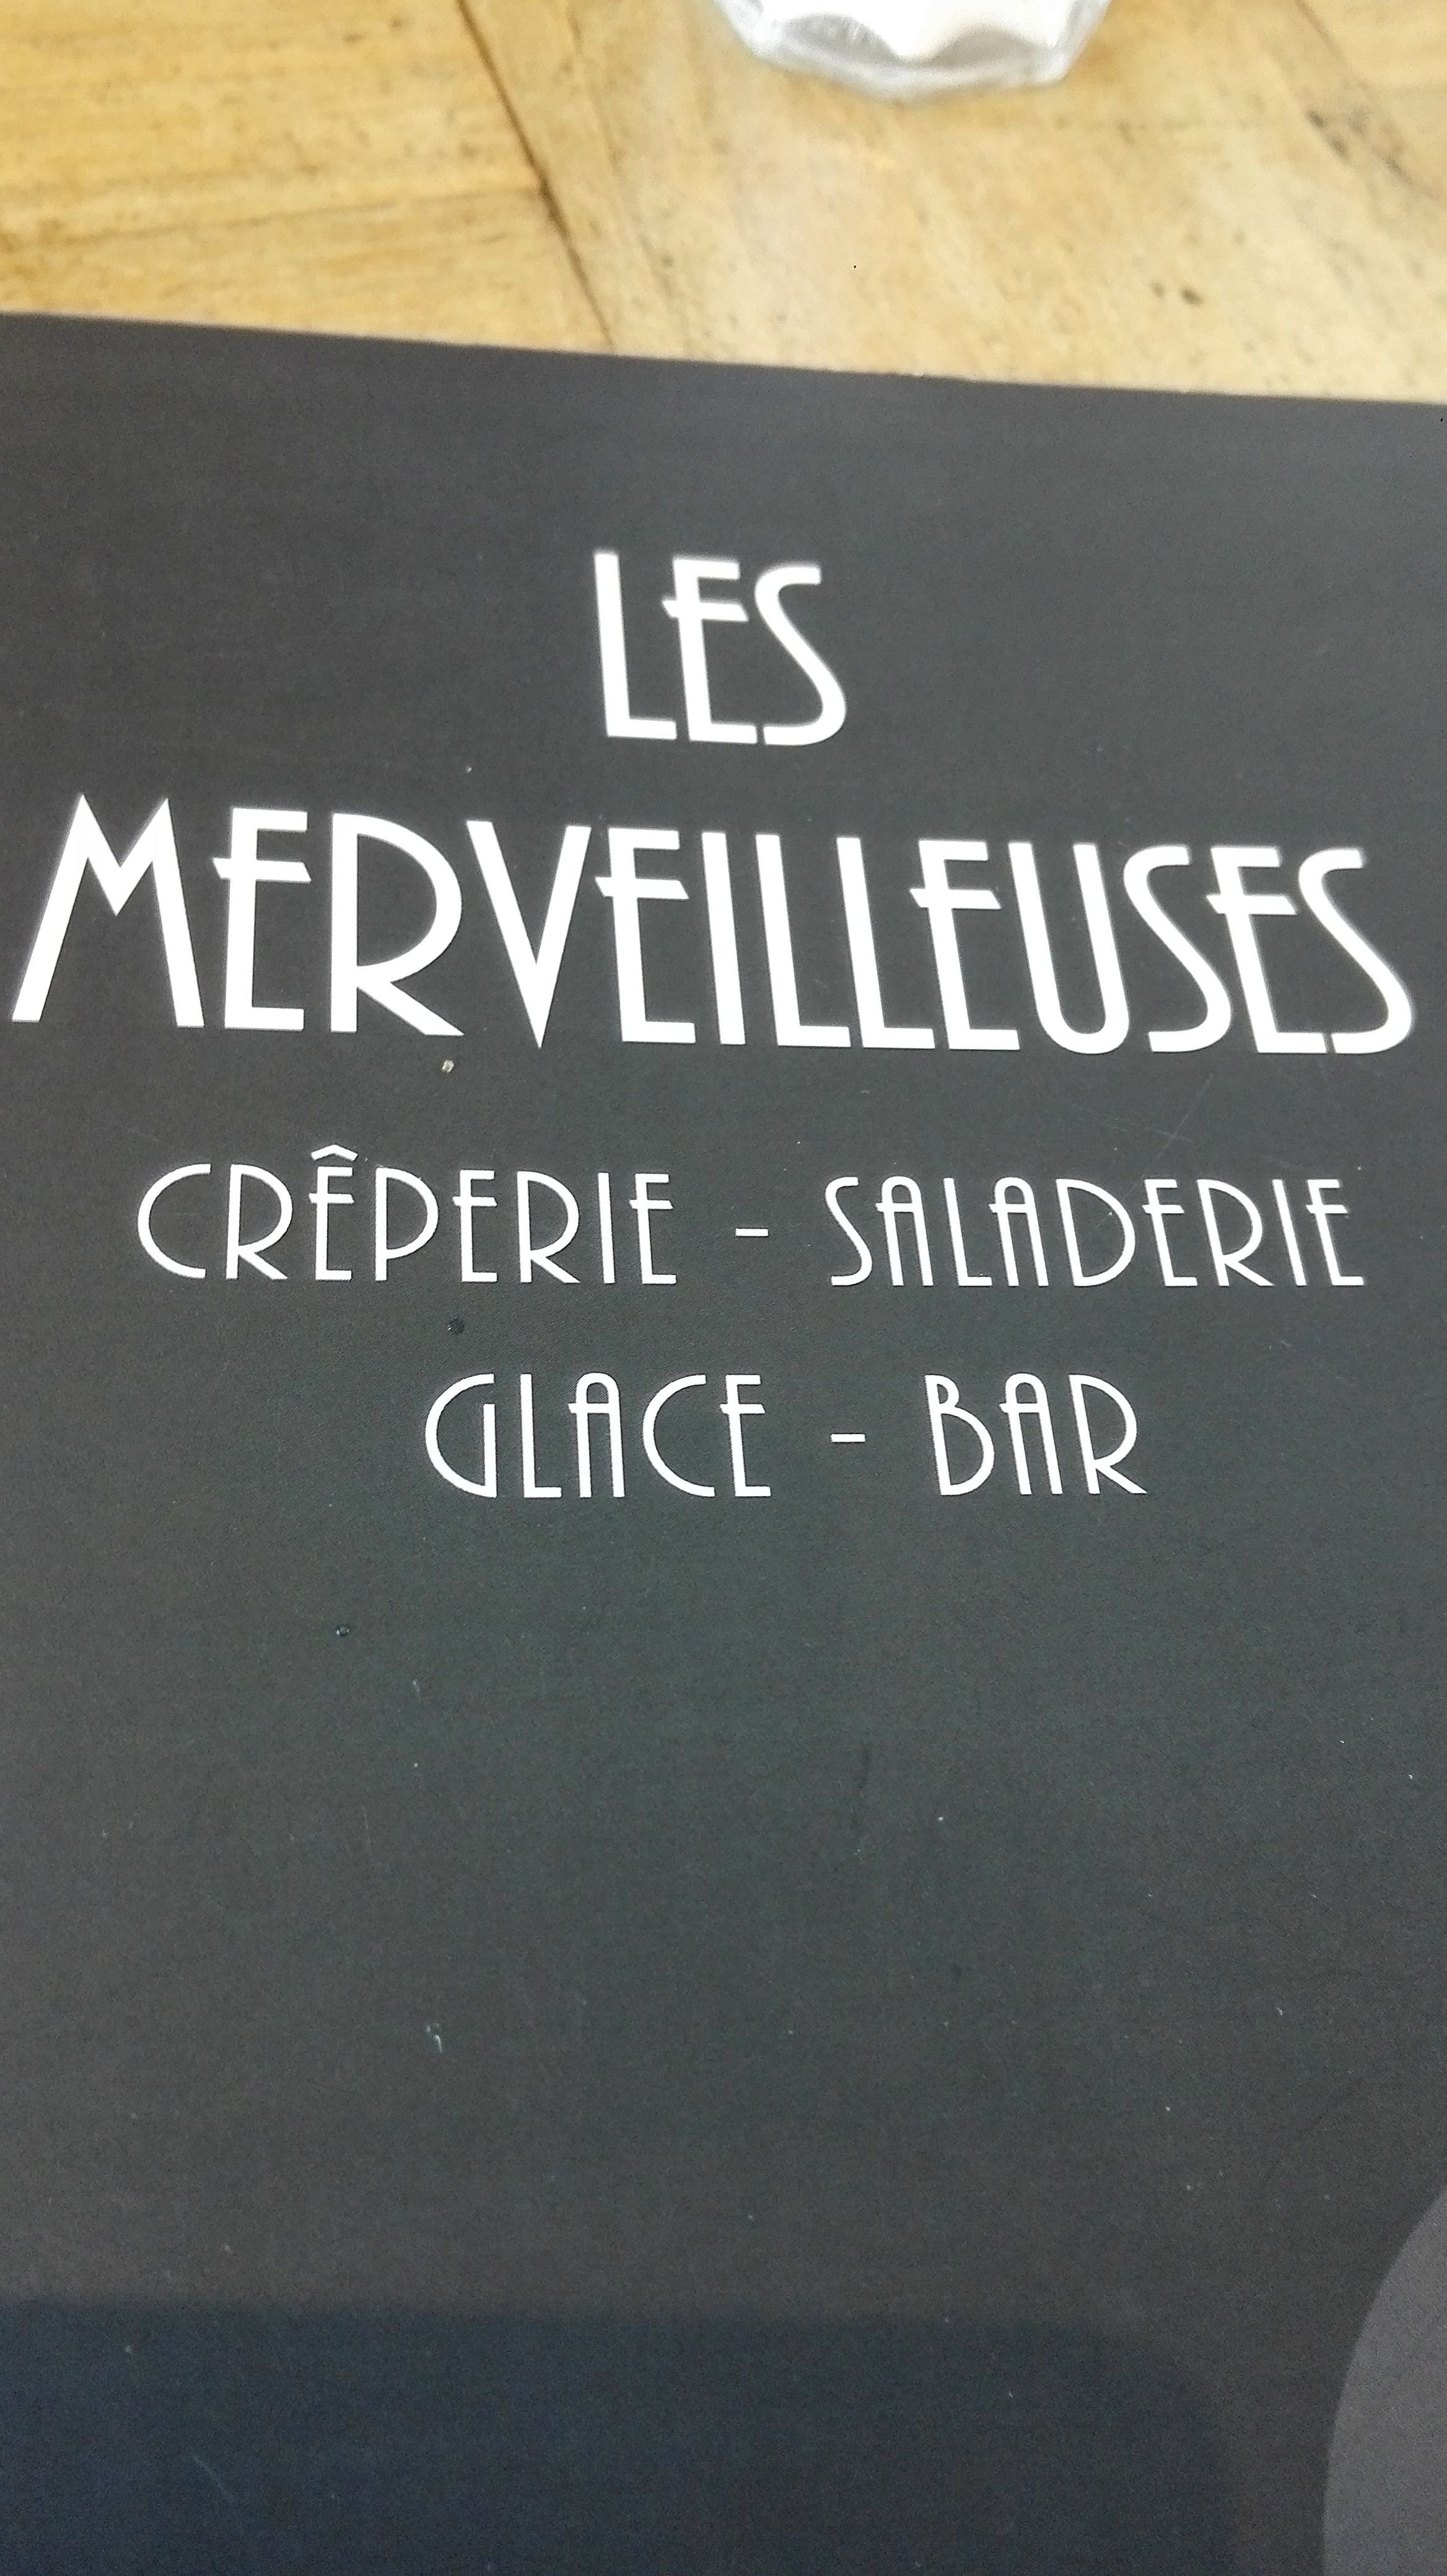 LES
MERVEILLEUSES
CRÊPERIE - SALADERIE
GLACE - BAR